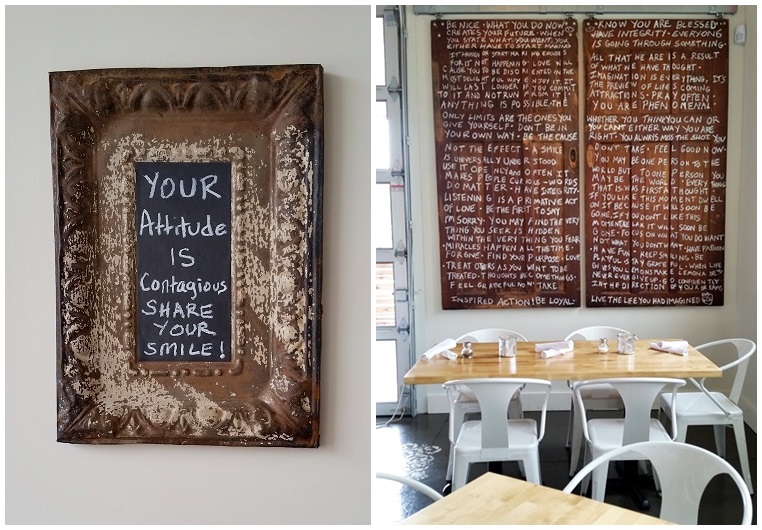 YOUR
Attitude
IS
Contagious
SHARE
YOUR
SMILE!
BE NICE · WHAT YOU DO NOW
CREATES YOUR FUTURE · WHEN
YOU STATE WHAT YOU WANT, YOU
EITHER HAVE TO START MAKING
IT HAPPEN OR START MAKING EXCUSES
FOR IT NOT HAPPENING · LOVE WILL
CAUSE YOU TO BE DISORIENTED IN THE
MOST DELIGHTFUL WAY ENJOY IT. IT
WILL LAST LONGER IF YOU COMMIT
TO IT AND NOT RUN FROM IT!
ANYTHING IS POSSIBLE · THE
ONLY LIMITS ARE THE ONES YOU
GIVE YOURSELF · DON'T BE IN
YOUR OWN WAY · BE THE CAUSE
NOT THE EFFECT · A SMILE
IS UNIVERSALLY UNDERSTOOD
USE IT OPENLY AND OFTEN IT
MAKES PEOPLE CURIOUS · WORDS
DO MATTER · HAVE
LISTENING IS A PRIMATIVE ACT
OF LOVE · BE THE FIRST TO SAY
I'M SORRY · YOU MAY FIND THE VERY
THING YOU SEEK IS HIDDEN
WITHIN THE VERY THING YOU FEAR
MIRACLES HAPPEN ALL THE TIME ·
FORGIVE · FIND YOUR PURPOSE · LOVE
· TREAT OTHERS AS YOU WANT TO BE
TREATED · THOUGHTS BECOME THINGS ·
FEEL GRATEFUL NOW · TAKE
INSPIRED ACTION! BE LOYAL ·
· KNOW YOU ARE BLESSED ·
HAVE INTEGRITY · EVERYONE
IS GOING THROUGH SOMETHING ·
ALL THAT WE ARE IS A RESULT
OF WHAT WE HAVE THOUGHT ·
IMAGINATION IS EVERYTHING, IT'S
THE PREVIEW OF LIFE'S COMING
ATTRACTIONS · PRAY OFTEN ·
YOU ARE PHENOMENAL ·
WHETHER YOU THINK YOU CAN OR
YOU CAN'T EITHER WAY YOU ARE
RIGHT · YOU ALWAYS MISS THE SHOT YOU
DON'T TAKE · FEEL GOOD NOW
YOU MAY BE ONE PERSON TO THE
WORLD BUT TO ONE PERSON YOU
MAY BE THE WORLD · EVERYTHING
THAT IS WAS FIRST A THOUGHT
IF YOU LIKE THIS MOMENT DWELL
ON IT BECAUSE IT WILL SOON BE
GONE, IF YOU DON'T LIKE THIS
MOMENT RELAX IT WILL SOON BE
GONE · FOCUS ON WHAT YOU DO WANT
NOT WHAT YOU DON'T WANT · HAVE PASSION
· HAVE FUN · KEEP SMILING · BE
PLAYFUL · STAY GRATEFUL · WHEN LIFE
GIVES YOU LEMONS MAKE LEMONADE
NEVER EVER GIVE UP · GO CONFIDENTLY
IN THE DIRECTION OF YOUR DREAMS
LIVE THE LIFE YOU HAD IMAGINED